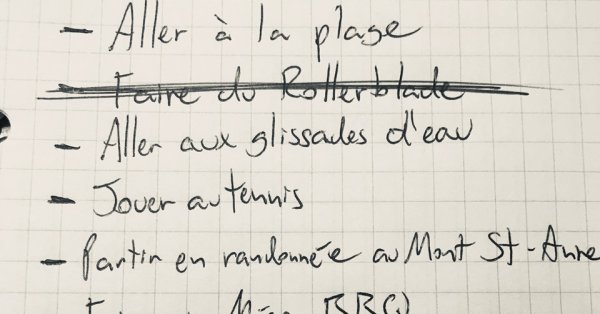 - Aller à la plage
- Faire du Rollerblade
- Aller aux glissades d'eau
- Jouer au tennis
- Partir en randonnée au Mont St-Anne
BBQ